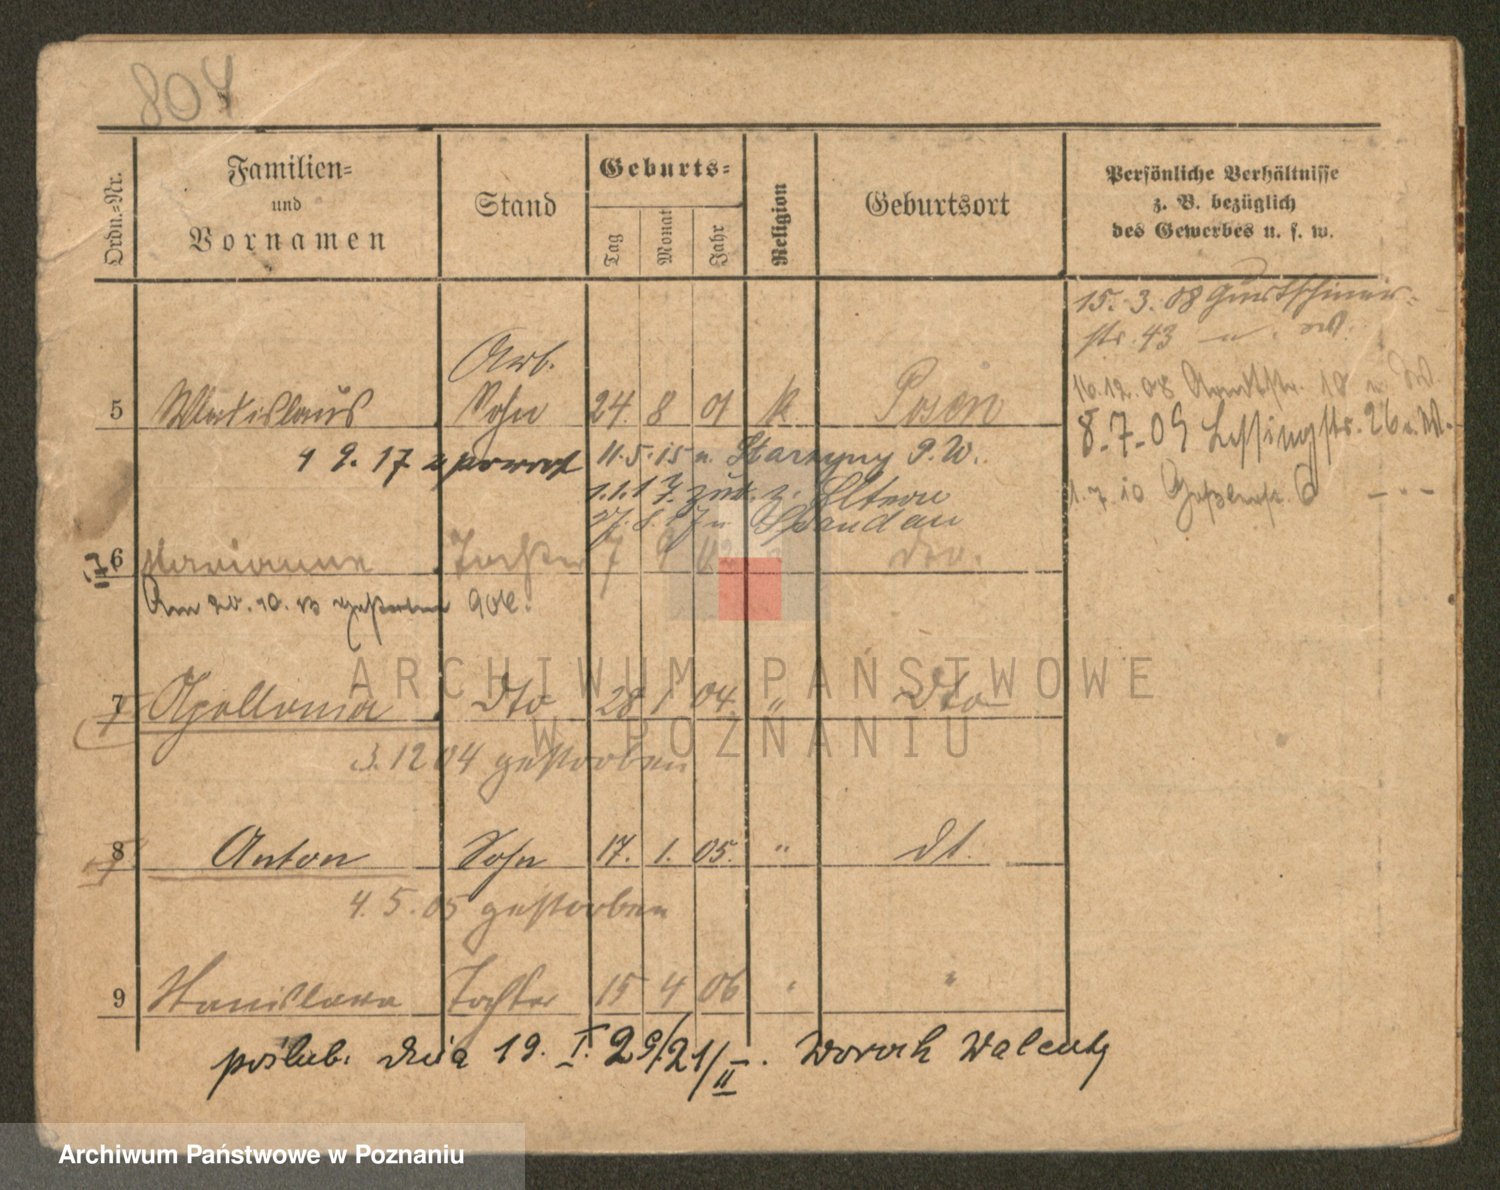 804
Ordn.-Nr.
Familien-
und
Vornamen
Stand
Geburts-
Tag
Monat
Jahr
Religion
Geburtsort
Persönliche Verhältnisse
z. B. bezüglich
des Gewerbes u. s. w.
15.3.08
str. 43
16.12.08
8.7.09 Lessingstr. 26
1.7.10
Arb.
5 Wladislaus Sohn 24. 8 01 k Posen
1 9. 17 z powrot 11.5.15 n. Starzyny P.W.
1.1.17. zur. z. Eltern
n Spandau
6 Marianne Tochter 7 9 02 dto.
Am 20.10.13 gestorben
7 Apollonia dto 28 1 04. " dto
3.12 04 gestorben
8 Anton Sohn 17. 1. 05. " dt.
4.5.05 gestorben
9 Stanislawa Tochter 15 4 06 " "
poślub. dnia 19. I. 29/21/II. Worach Walenty
ARCHIWUM PAŃSTWOWE
W POZNANIU
Archiwum Państwowe w Poznaniu